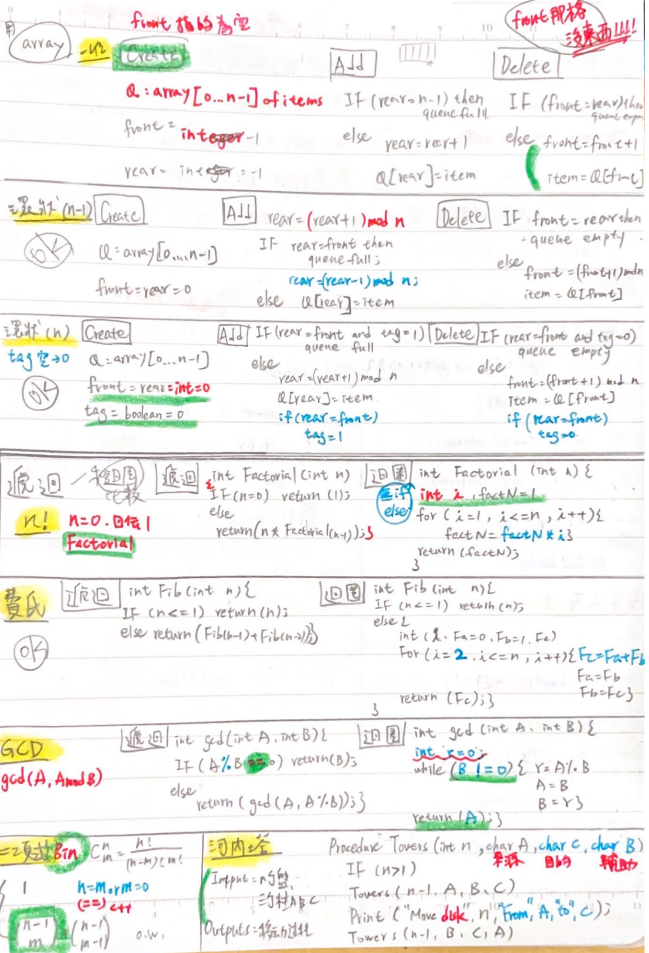 front 指的為空
front那格
沒東西!!!!
array
Create
Add
Delete
Q : array[0...n-1] of items
front = integer -1
rear = integer = -1
IF (rear = n-1) then
queue full
else rear = rear + 1
Q[rear] = item
IF (front = rear) then
queue empty
else front = front + 1
item = Q[front]
環狀 (n-1)
OK
Create
Q = array[0,...n-1]
front = rear = 0
Add
rear = (rear+1) mod n
IF rear = front then
queue full;
rear = (rear-1) mod n;
else Q[rear] = item
Delete
IF front = rear then
queue empty
else
front = (front+1) mod n
item = Q[front]
環狀 (n)
tag 空→0
OK
Create
Q = array[0...n-1]
front = rear = int = 0
tag = boolean = 0
Add
IF (rear = front and tag = 1)
queue full
else
rear = (rear+1) mod n
Q[rear] = item
if (rear = front)
tag = 1
Delete
IF (rear = front and tag = 0)
queue empty
else
front = (front+1) mod n
item = Q[front]
if (rear = front)
tag = 0
遞迴
比較
n!
n=0. 回傳1
Factorial
遞迴
int Factorial (int n)
{ IF (n=0) return (1);
else
return (n * Factorial(n-1)); }
迴圈
無if
else
int Factorial (int n) {
int i, factN = 1
for (i=1, i<=n, i++) {
factN = factN * i }
return (factN);
}
費氏
OK
遞迴
int Fib (int n) {
IF (n<=1) return (n);
else return (Fib(n-1) + Fib(n-2)) }
迴圈
int Fib (int n) {
IF (n<=1) return (n);
else {
int (i, Fa=0, Fb=1, Fc)
For (i=2, i<=n, i++) { Fc=Fa+Fb
Fa=Fb
Fb=Fc }
return (Fc); }
}
GCD
gcd(A, A mod B)
遞迴
int gcd (int A, int B) {
IF (A % B == 0) return (B);
else
return (gcd (A, A % B)); }
迴圈
int gcd (int A, int B) {
int r=0;
while (B != 0) { r = A % B
A = B
B = r }
return (A); }
二項式 Bin
C n m = n! / (n-m)! m!
1 n=m or m=0
(==) c++
(n-1 m) + (n-1 m-1) o.w.
河內塔
Input = n個盤,
3個柱 A B C
Outputs = 移動過程
Procedure Towers (int n, char A, char C, char B)
來源 目的 輔助
IF (n>1)
Towers (n-1, A, B, C)
Print ("Move disk", n, "From", A, "to", C);
Towers (n-1, B, C, A)